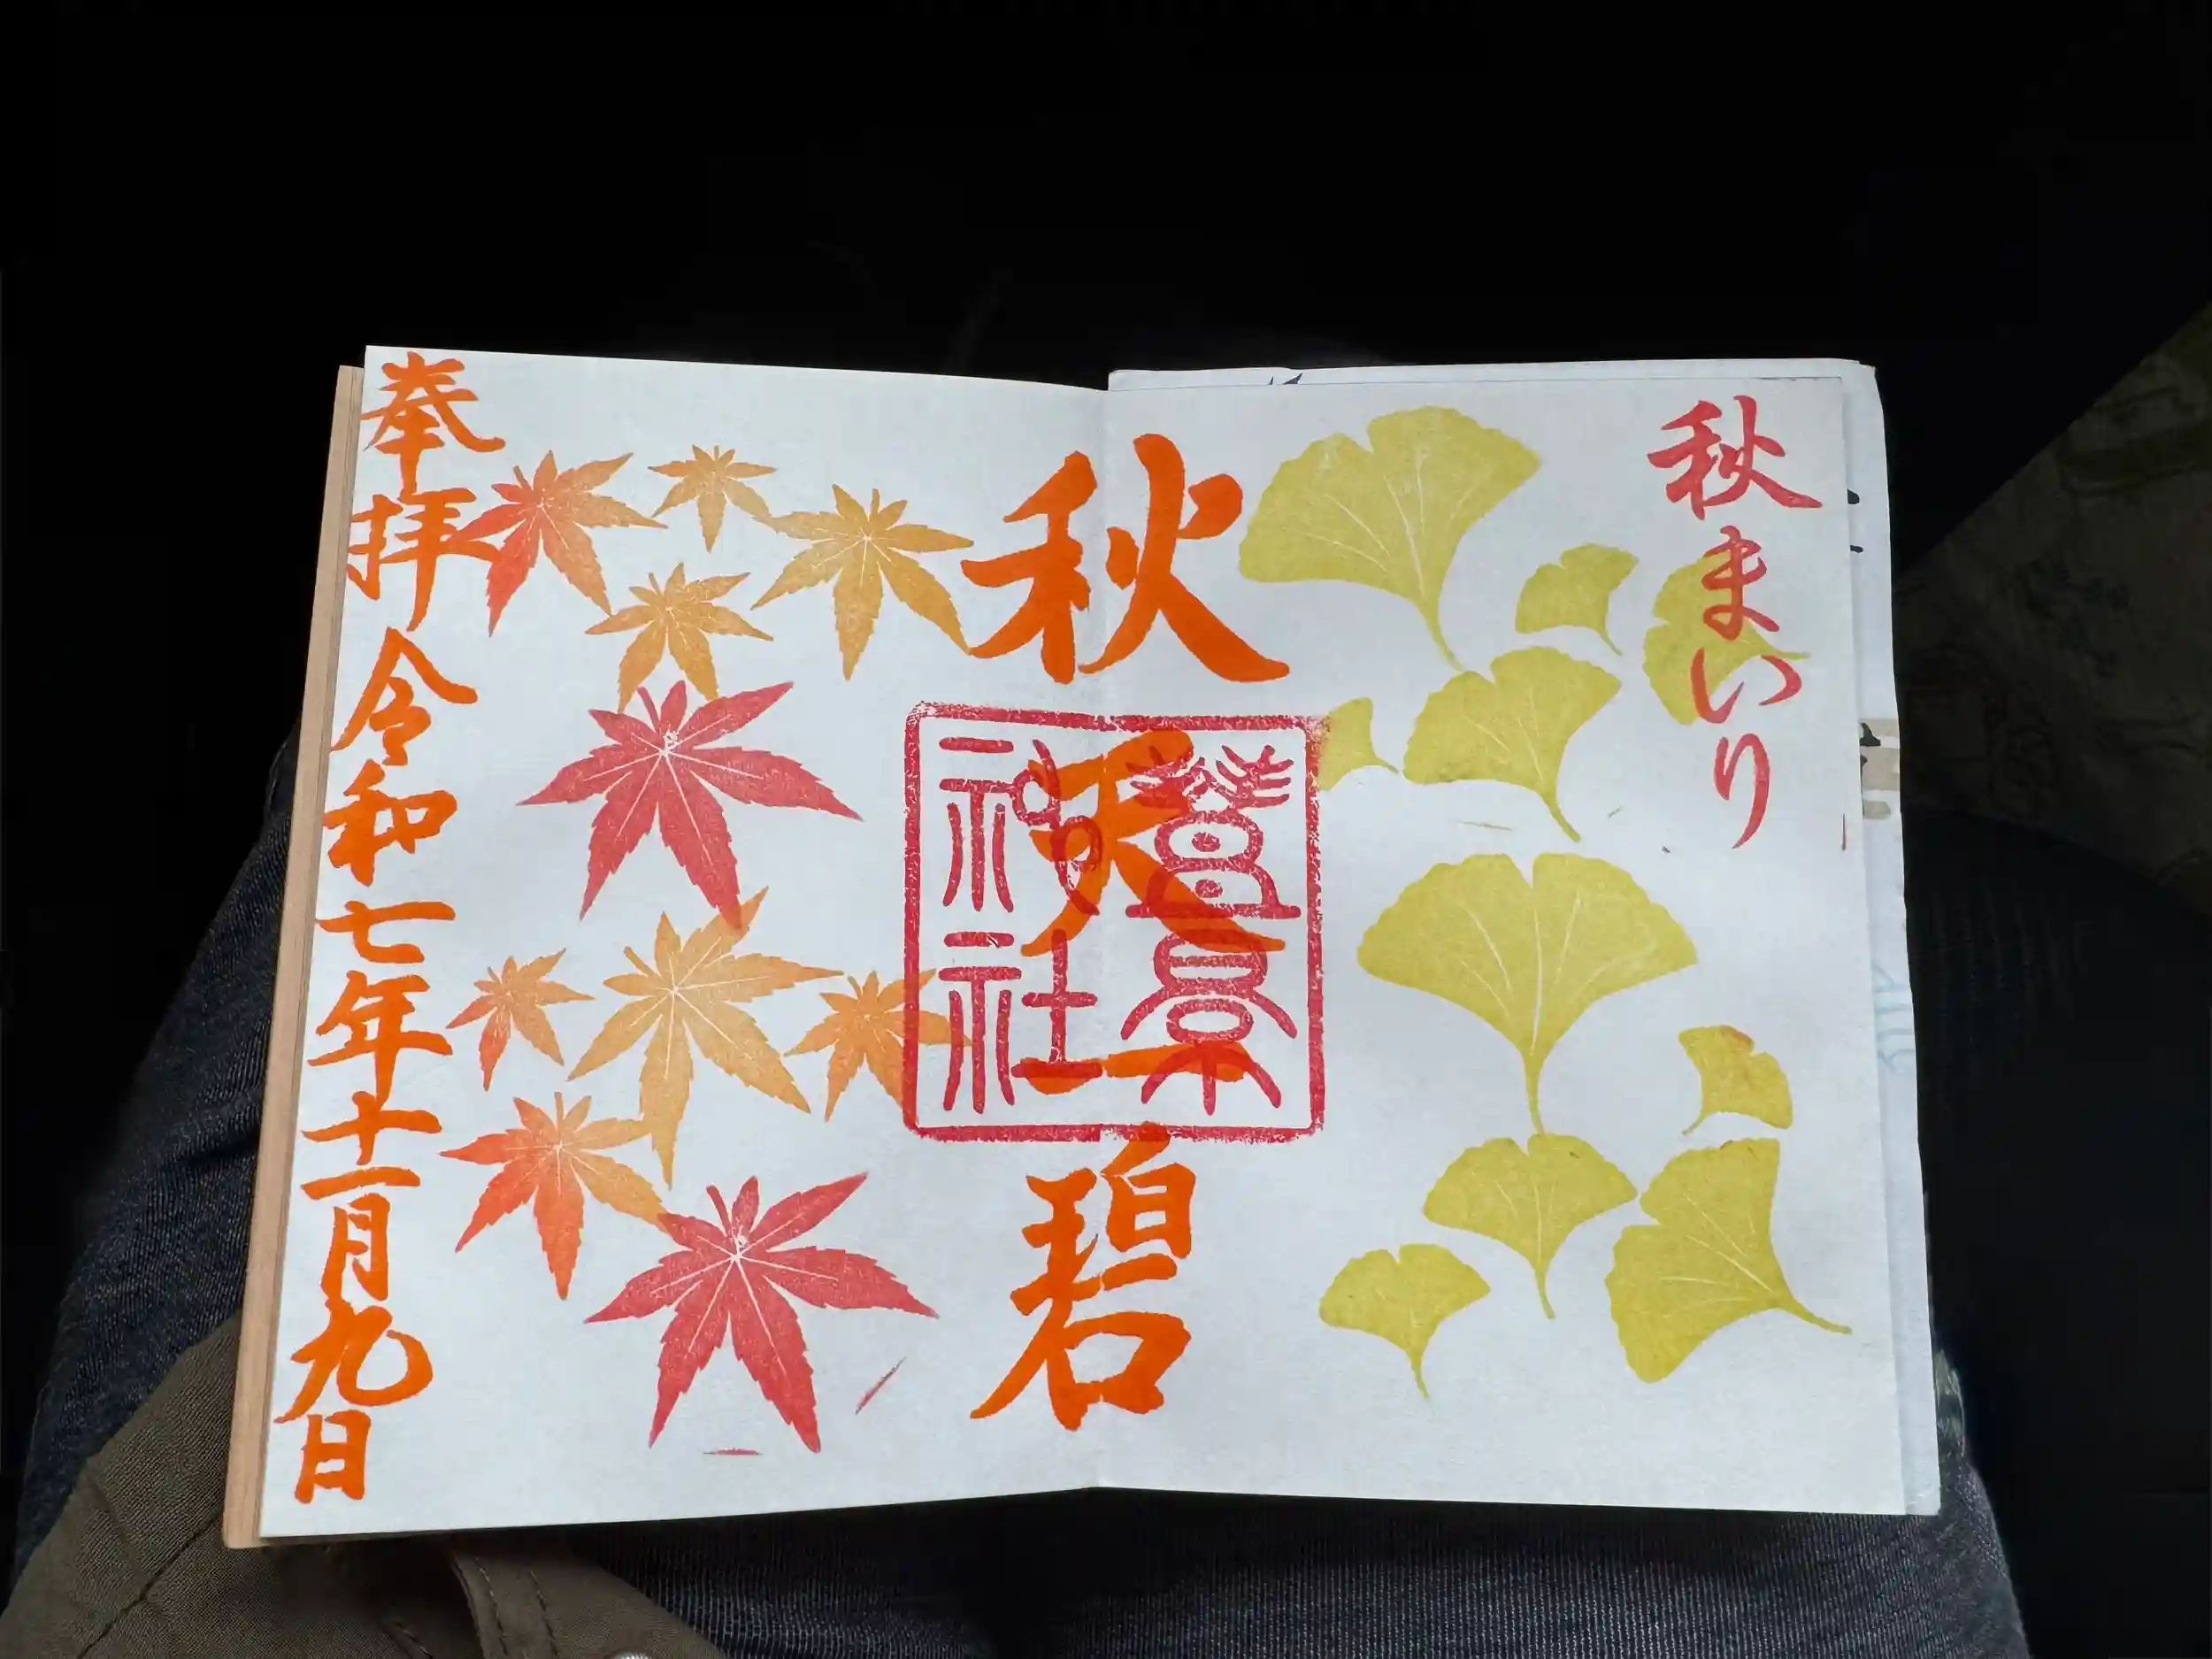 秋まいり
秋天一碧
豊景
神社
奉拝 令和七年十一月九日